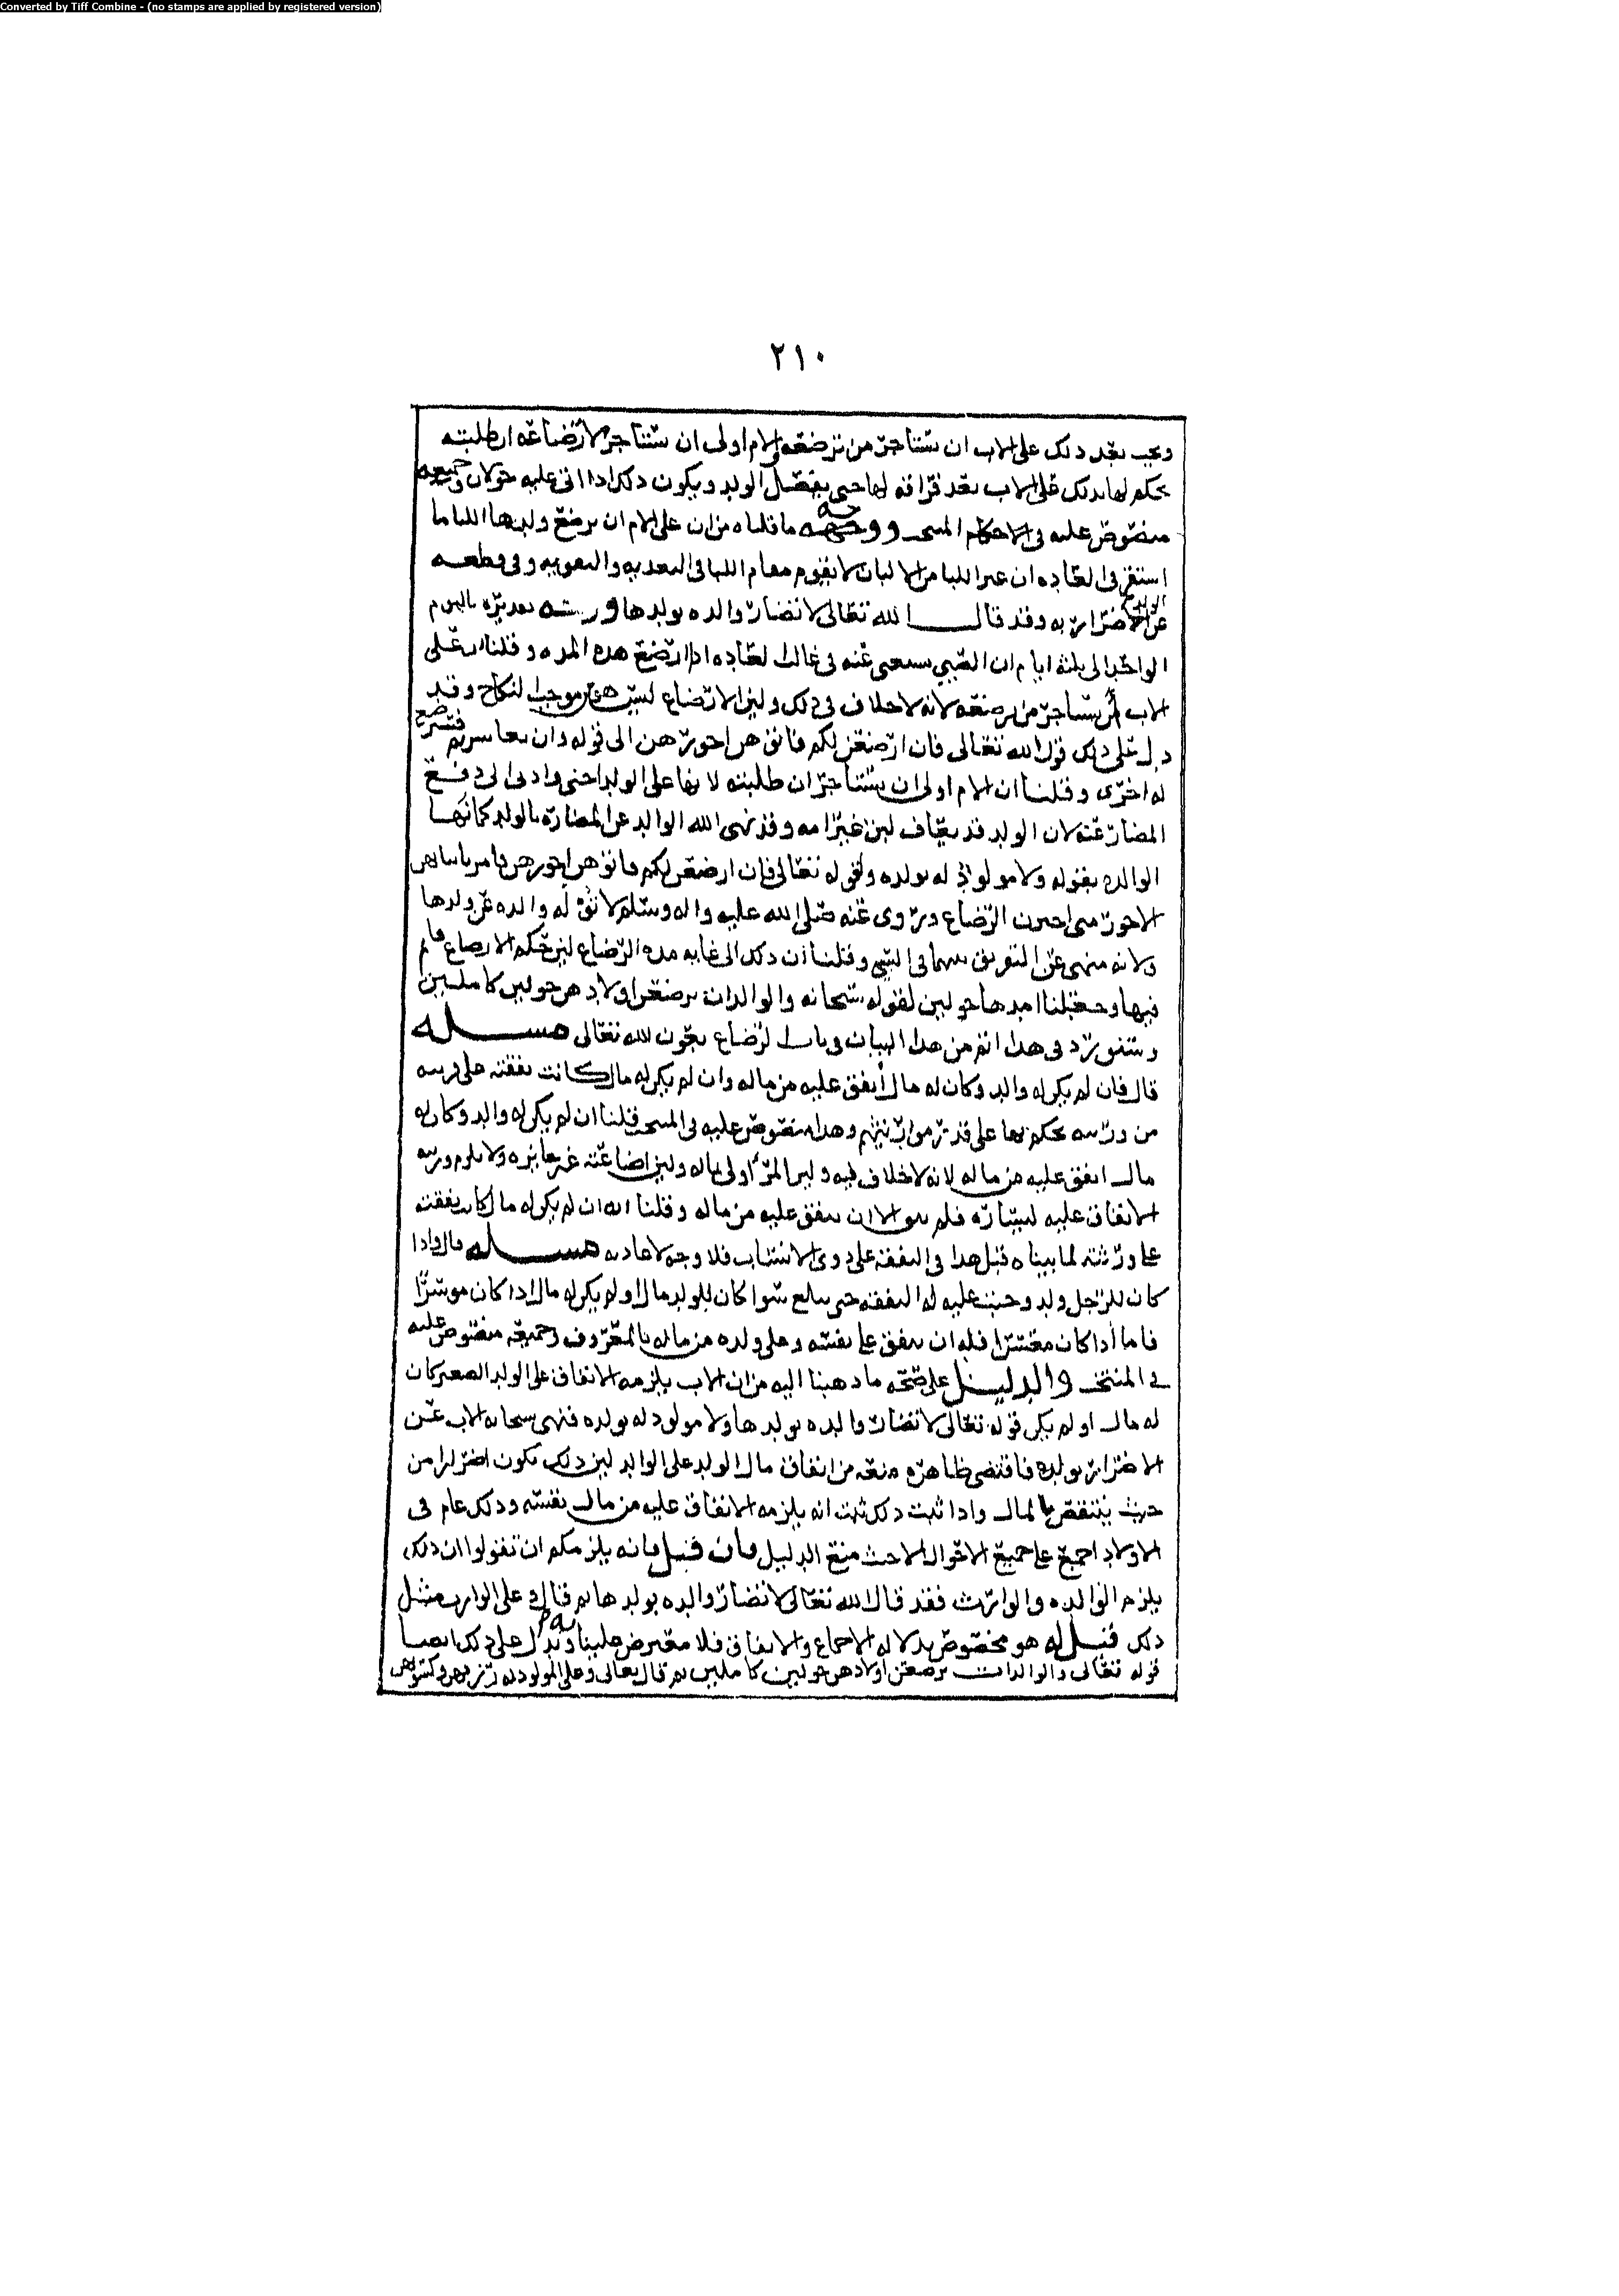 Converted by Tiff Combine - (no stamps are applied by registered version)
٢١٠
ويجب بعد ذلك على الاب ان يستاجر من ترضعه والام اولى ان يستاجر لارضاعه ان طلبته
يحكم لها بذلك على الاب بعد فراقه لها حتى يفصل الولد ويكون ذلك اذا اتى عليه حولان وجميعه
منصوص عليه في الاحكام المنتخب ووجهه ما قلناه من ان على الام ان ترضع ولدها اللبا ما
استقر في العاده ان غير اللبا من الالبان لا يقوم مقام اللبا في التغذيه والتقويه وفي قطعه
عن الولد اضرار به وقد قال الله تعالى لا تضار والده بولدها تقديره باليوم
الواحد الى ثلثة ايام ان الصبي يستغنى عنه في غالب العاده اذا ارتضع هذه المده وقلنا ان على
الاب ان يستاجر من يرضعه لانه لا خلاف في ذلك ولين الارضاع ليس هو موجب النكاح وقد
دل على ذلك قول الله تعالى فان ارضعن لكم فاتوهن اجورهن الى قوله وان تعاسرتم فسترضع
له اخرى وقلنا ان الام اولى ان يستاجر ان طلبته لانها على الولد احنى وادنى الى دفع
المضار عنه لان الولد قد يعاف لبن غير امه وقد نهى الله الوالد عن المضاره بالولد كما نها
الوالده بقوله ولا مولود له بولده ولقوله تعالى فان ارضعن لكم فاتوهن اجورهن فامر باتياهن
الاجور متى اخترن الرضاع وروى عنه صلى الله عليه واله وسلم لا توله والده عن ولدها
ولانه منهى عن التفريق بينهما في السبي وقلنا ان ذلك الى غايه مده الرضاع لين حكم الارضاع قايم
فيها وجعلنا امدها حولين لقوله سبحانه والوالدات يرضعن اولادهن حولين كاملين
وسنورد في هذا اتم من هذا البيان في باب الرضاع بعون الله تعالى مسله
قال فان لم يكن له والد وكان له مال انفق عليه من ماله وان لم يكن له مال كانت نفقته على ورثته
من ورثته يحكم بها على قدر مواريثهم وهذا منصوص عليه في المنتخب قلنا ان لم يكن له والد وكان له
مال انفق عليه من ماله لانه لا خلاف فيه ولين المرء اولى بماله ولين اضاعته غير جايزه ولا يلزم ورثته
الانفاق عليه ليساره فلم يبق الا ان ينفق عليه من ماله وقلنا انه ان لم يكن له مال كان نفقته
على ورثته لما بيناه قبل هذا في النفقه على ذوى الانساب فلا وجه لاعادته مسله قال واذا
كان للرجل ولد وجبت عليه له النفقه حتى يبلغ سوا كان للولد مال او لم يكن له مال اذا كان موسرا
فاما اذا كان معسرا فله ان ينفق على نفسه وعلى ولده من ماله بالمعروف وجميعه منصوص عليه
في المنتخب والدليل على صحه ما ذهبنا اليه من ان الاب يلزمه الانفاق على الولد الصغير كان
له مال او لم يكن قوله تعالى لا تضار والده بولدها ولا مولود له بولده فنهى سبحانه الاب عن
الاضرار بولده فاقتضى ظاهره منعه من انفاق مال الولد على الوالد لين ذلك يكون اضرارا من
حيث ينتقص المال واذا ثبت ذلك ثبت انه يلزمه الانفاق عليه من مال نفسه وذلك عام في
الاولاد اجمع على جميع الاحوال الا حيث منع الدليل فان قيل فانه يلزمكم ان تقولوا ان ذلك
يلزم الوالده والوارث فقد قال الله تعالى لا تضار والده بولدها ثم قال وعلى الوارث مثل
ذلك قيل له هو مخصوص بدلاله الاجماع والاتفاق فلا معترض علينا به ويدل على ذلك ايضا
قوله تعالى والوالدات يرضعن اولادهن حولين كاملين ثم قال تعالى وعلى المولود له رزقهن وكسوتهن